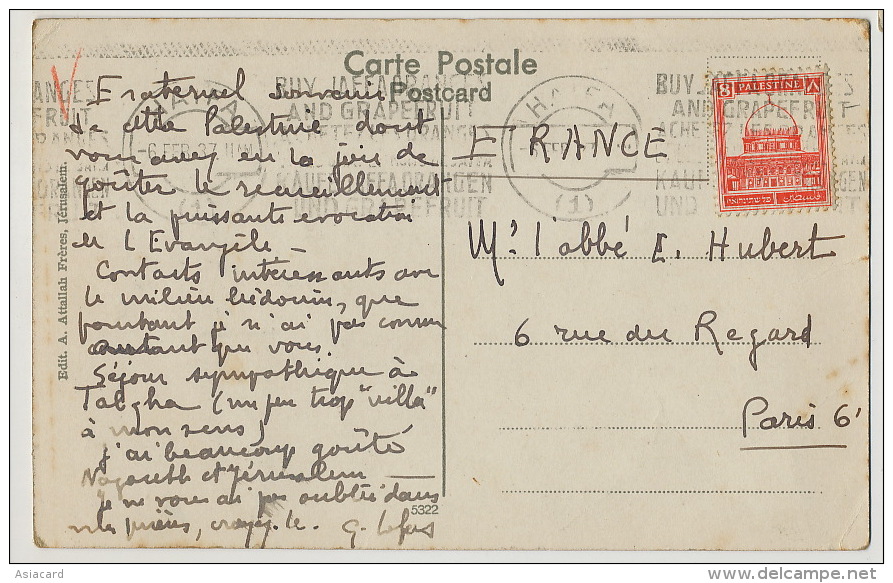 Carte Postale
Postcard
BUY JAFFA ORANGES
AND GRAPEFRUIT
KAUFT JAFFA ORANGEN
UND GRAPEFRUIT
HAIFA
-6 FEB 37
(1)
HAIFA
(1)
BUY JAFFA ORANGES
AND GRAPEFRUIT
UND GRAPEFRUIT
8 PALESTINE ٨
فلسطين
Fraternel souvenir
de cette Palestine dont
vous avez eu la joie de
goûter le recueillement
et la puissante évocation
de l'Evangile —
Contacts intéressants avec
le milieu bédouin, que
pourtant je n'ai pas connu
autant que vous.
Séjour sympathique à
Tabgha (un peu trop "villa"
à mon sens)
j'ai beaucoup goûté
Nazareth et Jérusalem —
je ne vous ai pas oublié dans
mes prières, croyez-le.
FRANCE
Mr l'abbé E. Hubert
6 rue du Regard
Paris 6e
Edit. A. Attallah Frères, Jérusalem.
5322
Asiacard
delcampe.net